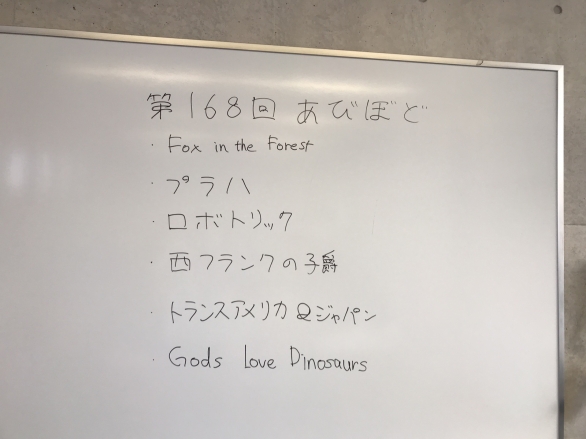 第168回 あびぼど
・Fox in the Forest
・プラハ
・ロボトリック
・西フランクの子爵
・トランスアメリカ&ジャパン
・Gods Love Dinosaurs